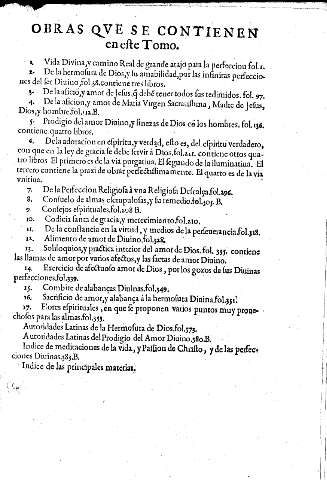 OBRAS QVE SE CONTIENEN
en este Tomo.
1. Vida Diuina, y camino Real de grande atajo para la perfeccion fol.1.
2. De la hermosura de Dios, y su amabilidad, por las infinitas perfeccio-
nes del ser Diuino, fol.58. contiene tres libros.
3. De la aficiõ, y amor de Jesus, q̃ debẽ tener todos sus redimidos. fol. 97.
4. De la aficion, y amor de Maria Virgen Sacratissima, Madre de Jesus,
Dios, y hombre, fol.112.B.
5. Prodigio del amor Diuino, y finezas de Dios cõ los hombres. fol. 136.
contiene quatro libros.
6. De la adoracion en espiritu, y verdad, esto es, del espiritu verdadero,
con que en la ley de gracia se debe seruir à Dios. fol.211. contiene otros qua-
tro libros El primero es de la via purgatiua. El segundo de la iluminatiua. El
tercero contiene la praxi de obrar perfectissimamente. El quarto es de la via
vnitiua.
7. De la Perfeccion Religiosa à vna Religiosa Descalça.fol.296.
8. Consuelo de almas escrupulosas, y su remedio.fol.303. B.
9. Consejos espirituales.fol.308 B.
10. Codicia santa de gracia, y merecimiento.fol.310.
11. De la constancia en la virtud, y medios de la perseuerancia.fol.318.
12. Alimento de amor Diuino.fol.328.
13. Soliloquios, y practica interior del amor de Dios. fol. 335. contiene
las llamas de amor por varios afectos, y las saetas de amor Diuino.
14. Exercicio de afectuoso amor de Dios, por los gozos de sus Diuinas
perfecciones.fol.339.
15. Combite de alabanças Diuinas.fol.349.
16. Sacrificio de amor, y alabança à la hermosura Diuina.fol.351.
17. Flores espirituales, en que se proponen varios puntos muy proue-
chosos para las almas.fol.353.
Autoridades Latinas de la Hermosura de Dios.fol.373.
Autoridades Latinas del Prodigio del Amor Diuino.380.B.
Indice de meditaciones de la vida, y Passion de Christo, y de las perfec-
ciones Diuinas.383.B.
Indice de las principales materias.